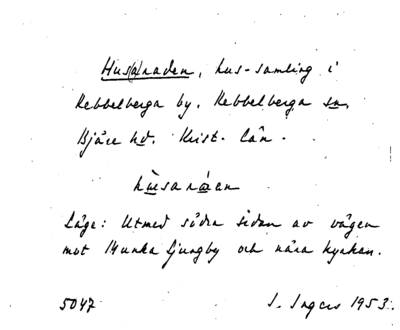 Hus(a)raden, hus-samling i
Rebbelberga by. Rebbelberga sn,
Bjäre hd. Krist. län.
hùsaràan
Läge: Utmed södra sidan av vägen
mot Munka Ljungby och nära kyrkan.
5047 I. Ingers 1953.